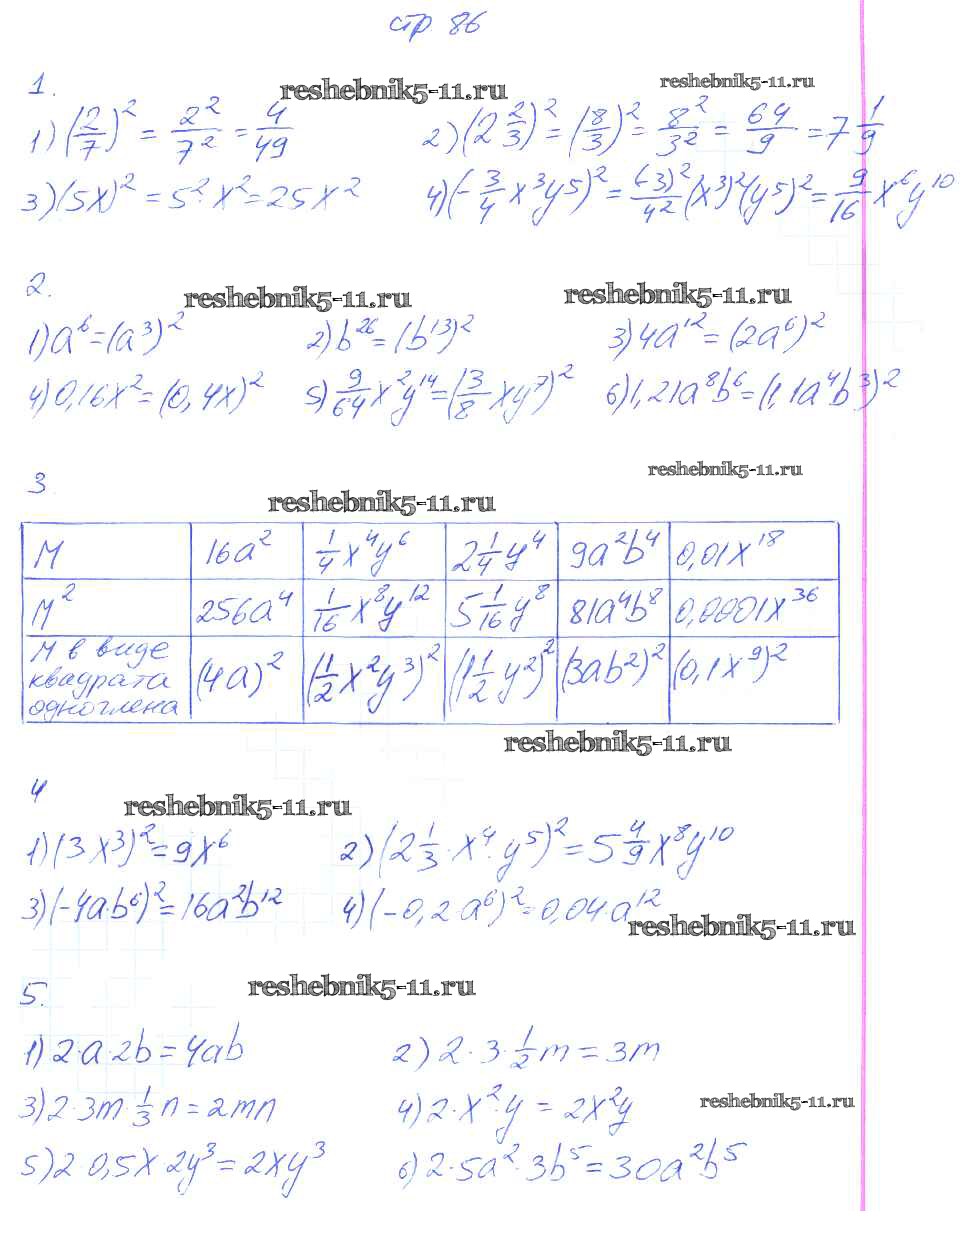 стр 86
1.
reshebnik5-11.ru reshebnik5-11.ru
1) (2/7)² = 2²/7² = 4/49 2) (2 2/3)² = (8/3)² = 8²/3² = 64/9 = 7 1/9
3) (5x)² = 5²·x² = 25x² 4) (-3/4 x³y⁵)² = (-3)²/4² (x³)²(y⁵)² = 9/16 x⁶y¹⁰
2.
reshebnik5-11.ru reshebnik5-11.ru
1) a⁶ = (a³)² 2) b²⁶ = (b¹³)² 3) 4a¹² = (2a⁶)²
4) 0,16x² = (0,4x)² 5) 9/64 x²y¹⁴ = (3/8 xy⁷)² 6) 1,21a⁸b⁶ = (1,1a⁴b³)²
reshebnik5-11.ru
3
reshebnik5-11.ru
M 16a² 1/4 x⁴y⁶ 2 1/4 y⁴ 9a²b⁴ 0,01x¹⁸
M² 256a⁴ 1/16 x⁸y¹² 5 1/16 y⁸ 81a⁴b⁸ 0,0001x³⁶
M в виде квадрата одночлена (4a)² (1/2 x²y³)² (1 1/2 y²)² (3ab²)² (0,1x⁹)²
reshebnik5-11.ru
4
reshebnik5-11.ru
1) (3x³)² = 9x⁶ 2) (2 1/3·x⁴·y⁵)² = 5 4/9 x⁸y¹⁰
3) (-4a·b⁶)² = 16a²b¹² 4) (-0,2·a⁶)² = 0,04·a¹²
reshebnik5-11.ru
reshebnik5-11.ru
5.
1) 2·a·2b = 4ab 2) 2·3·1/2 m = 3m
3) 2·3m·1/3 n = 2mn 4) 2·x²·y = 2x²y
reshebnik5-11.ru
5) 2 0,5x·2y³ = 2xy³ 6) 2·5a²·3b⁵ = 30a²b⁵